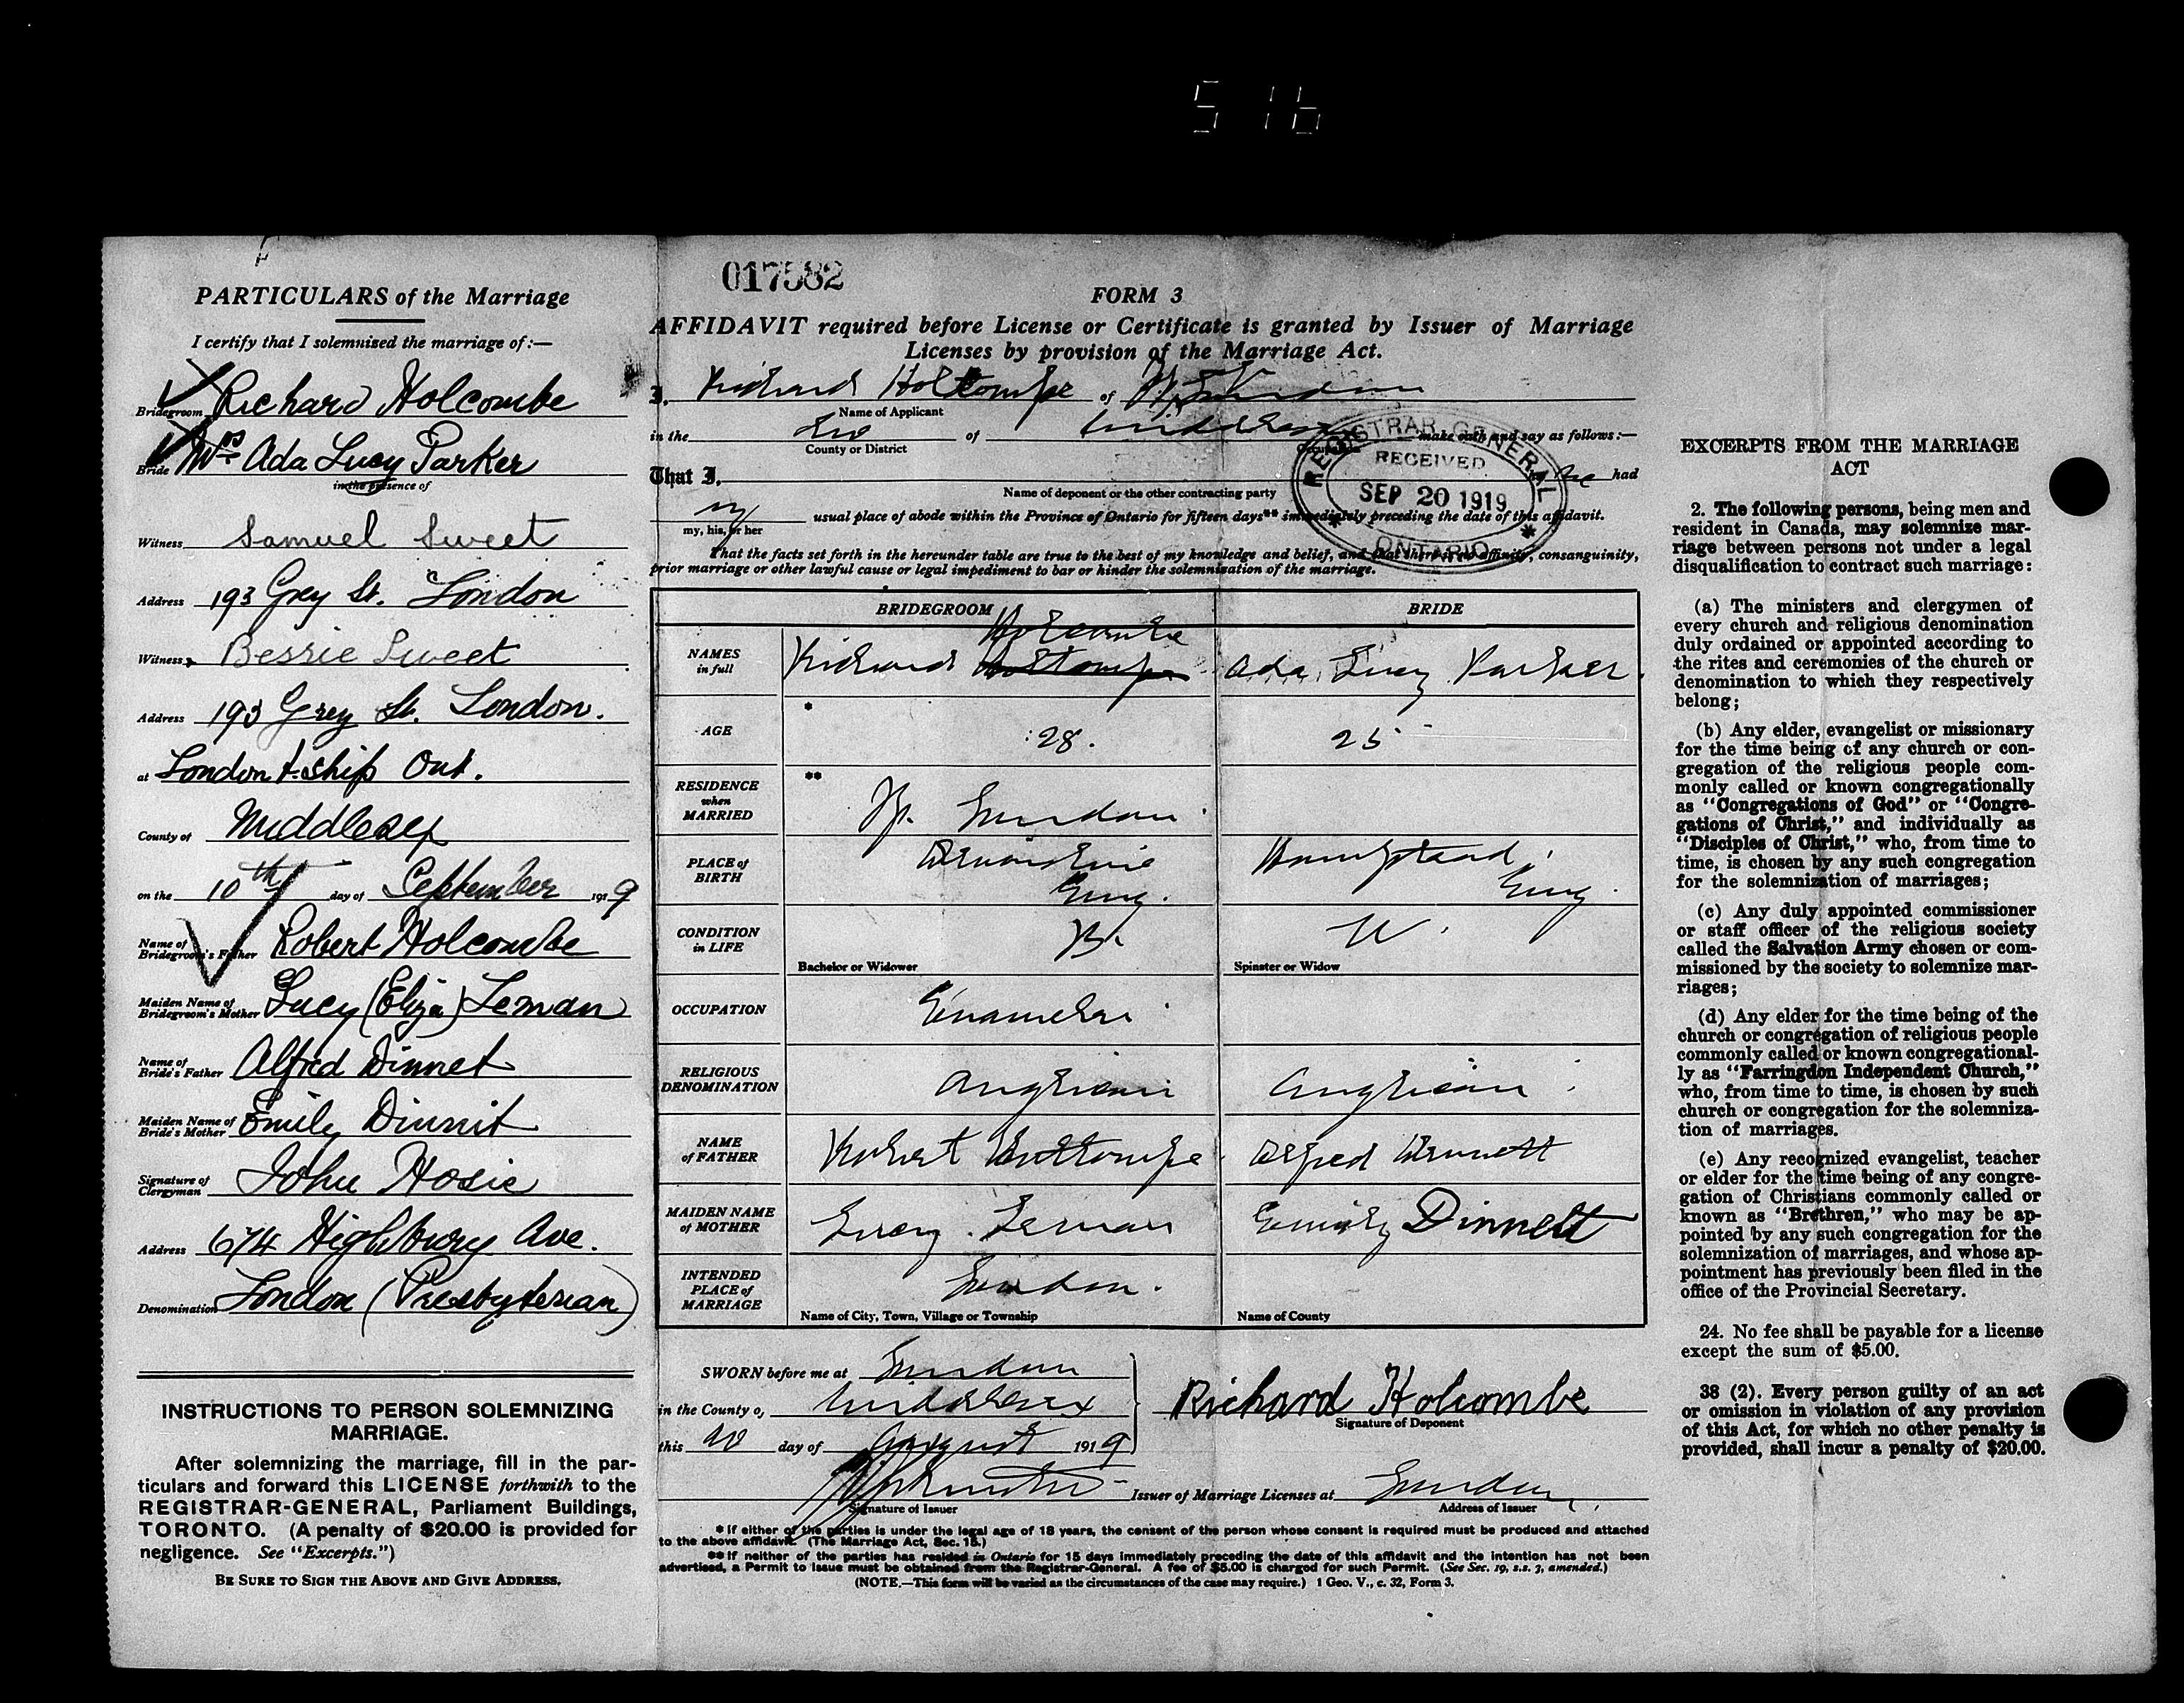 516
PARTICULARS of the Marriage
I certify that I solemnized the marriage of:—
Bridegroom Richard Holcombe
Bride Mrs Ada Lucy Parker
in the presence of
Witness Samuel Sweet
Address 193 Grey St. London
Witness Bessie Sweet
Address 193 Grey St. London.
at London t-ship Ont.
County of Middlesex
on the 10th day of September 1919
Name of Bridegroom's Father Robert Holcombe
Maiden Name of Bridegroom's Mother Lucy (Eliza) Leman
Name of Bride's Father Alfred Dinnet
Maiden Name of Bride's Mother Emily Dinnit
Signature of Clergyman John Hosie
Address 674 Highbury Ave.
Denomination London (Presbyterian)
INSTRUCTIONS TO PERSON SOLEMNIZING
MARRIAGE.
After solemnizing the marriage, fill in the par-
ticulars and forward this LICENSE forthwith to the
REGISTRAR-GENERAL, Parliament Buildings,
TORONTO. (A penalty of $20.00 is provided for
negligence. See "Excerpts.")
BE SURE TO SIGN THE ABOVE AND GIVE ADDRESS.
017582
FORM 3
AFFIDAVIT required before License or Certificate is granted by Issuer of Marriage
Licenses by provision of the Marriage Act.
I, Richard Holtcombe of London
Name of Applicant
in the Co of Middlesex make oath and say as follows:—
County or District Occupation
That I, had
Name of deponent or the other contracting party
my usual place of abode within the Province of Ontario for fifteen days** immediately preceding the date of this affidavit.
my, his, or her
That the facts set forth in the hereunder table are true to the best of my knowledge and belief, and that there is no affinity, consanguinity,
prior marriage or other lawful cause or legal impediment to bar or hinder the solemnization of the marriage.
REGISTRAR GENERAL
RECEIVED
SEP 20 1919
ONTARIO
BRIDEGROOM BRIDE
Holcombe
NAMES in full Richard Ada Lucy Parker
AGE * 28. 25
RESIDENCE when MARRIED ** London
PLACE of BIRTH Devonshire Eng. Hampstead, Eng.
CONDITION in LIFE B. W.
Bachelor or Widower Spinster or Widow
OCCUPATION Enameler
RELIGIOUS DENOMINATION Anglican Anglican
NAME of FATHER Robert Holtcombe Alfred Dinnett
MAIDEN NAME of MOTHER Lucy Leman Emily Dinnett
INTENDED PLACE of MARRIAGE London.
Name of City, Town, Village or Township Name of County
SWORN before me at London
in the County of Middlesex
this day of August 1919
Richard Holcombe
Signature of Deponent
Signature of Issuer
Issuer of Marriage Licenses at London
Address of Issuer
* If either of the parties is under the legal age of 18 years, the consent of the person whose consent is required must be produced and attached
to the above affidavit. (The Marriage Act, Sec. 15.)
** If neither of the parties has resided in Ontario for 15 days immediately preceding the date of this affidavit and the intention has not been
advertised, a Permit to issue must be obtained from the Registrar-General. A fee of $5.00 is charged for such Permit. (See Sec. 19, s.s. 3, amended.)
(NOTE.—This form will be varied as the circumstances of the case may require.) 1 Geo. V., c. 32, Form 3.
EXCERPTS FROM THE MARRIAGE
ACT
2. The following persons, being men and
resident in Canada, may solemnize mar-
riage between persons not under a legal
disqualification to contract such marriage:
(a) The ministers and clergymen of
every church and religious denomination
duly ordained or appointed according to
the rites and ceremonies of the church or
denomination to which they respectively
belong;
(b) Any elder, evangelist or missionary
for the time being of any church or con-
gregation of the religious people com-
monly called or known congregationally
as "Congregations of God" or "Congre-
gations of Christ," and individually as
"Disciples of Christ," who, from time to
time, is chosen by any such congregation
for the solemnization of marriages;
(c) Any duly appointed commissioner
or staff officer of the religious society
called the Salvation Army chosen or com-
missioned by the society to solemnize mar-
riages;
(d) Any elder for the time being of the
church or congregation of religious people
commonly called or known congregational-
ly as "Farringdon Independent Church,"
who, from time to time, is chosen by such
church or congregation for the solemniza-
tion of marriages.
(e) Any recognized evangelist, teacher
or elder for the time being of any congre-
gation of Christians commonly called or
known as "Brethren," who may be ap-
pointed by any such congregation for the
solemnization of marriages, and whose ap-
pointment has previously been filed in the
office of the Provincial Secretary.
24. No fee shall be payable for a license
except the sum of $5.00.
38 (2). Every person guilty of an act
or omission in violation of any provision
of this Act, for which no other penalty is
provided, shall incur a penalty of $20.00.